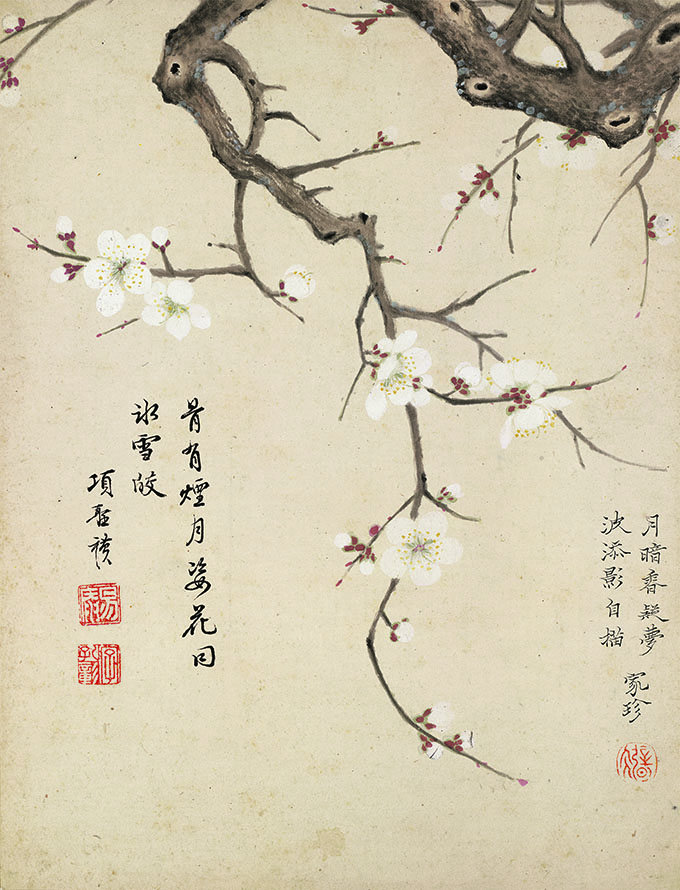 月暗香疑夢
波添影自描
家珍
骨有煙月姿花同
冰雪皎
項聖謨